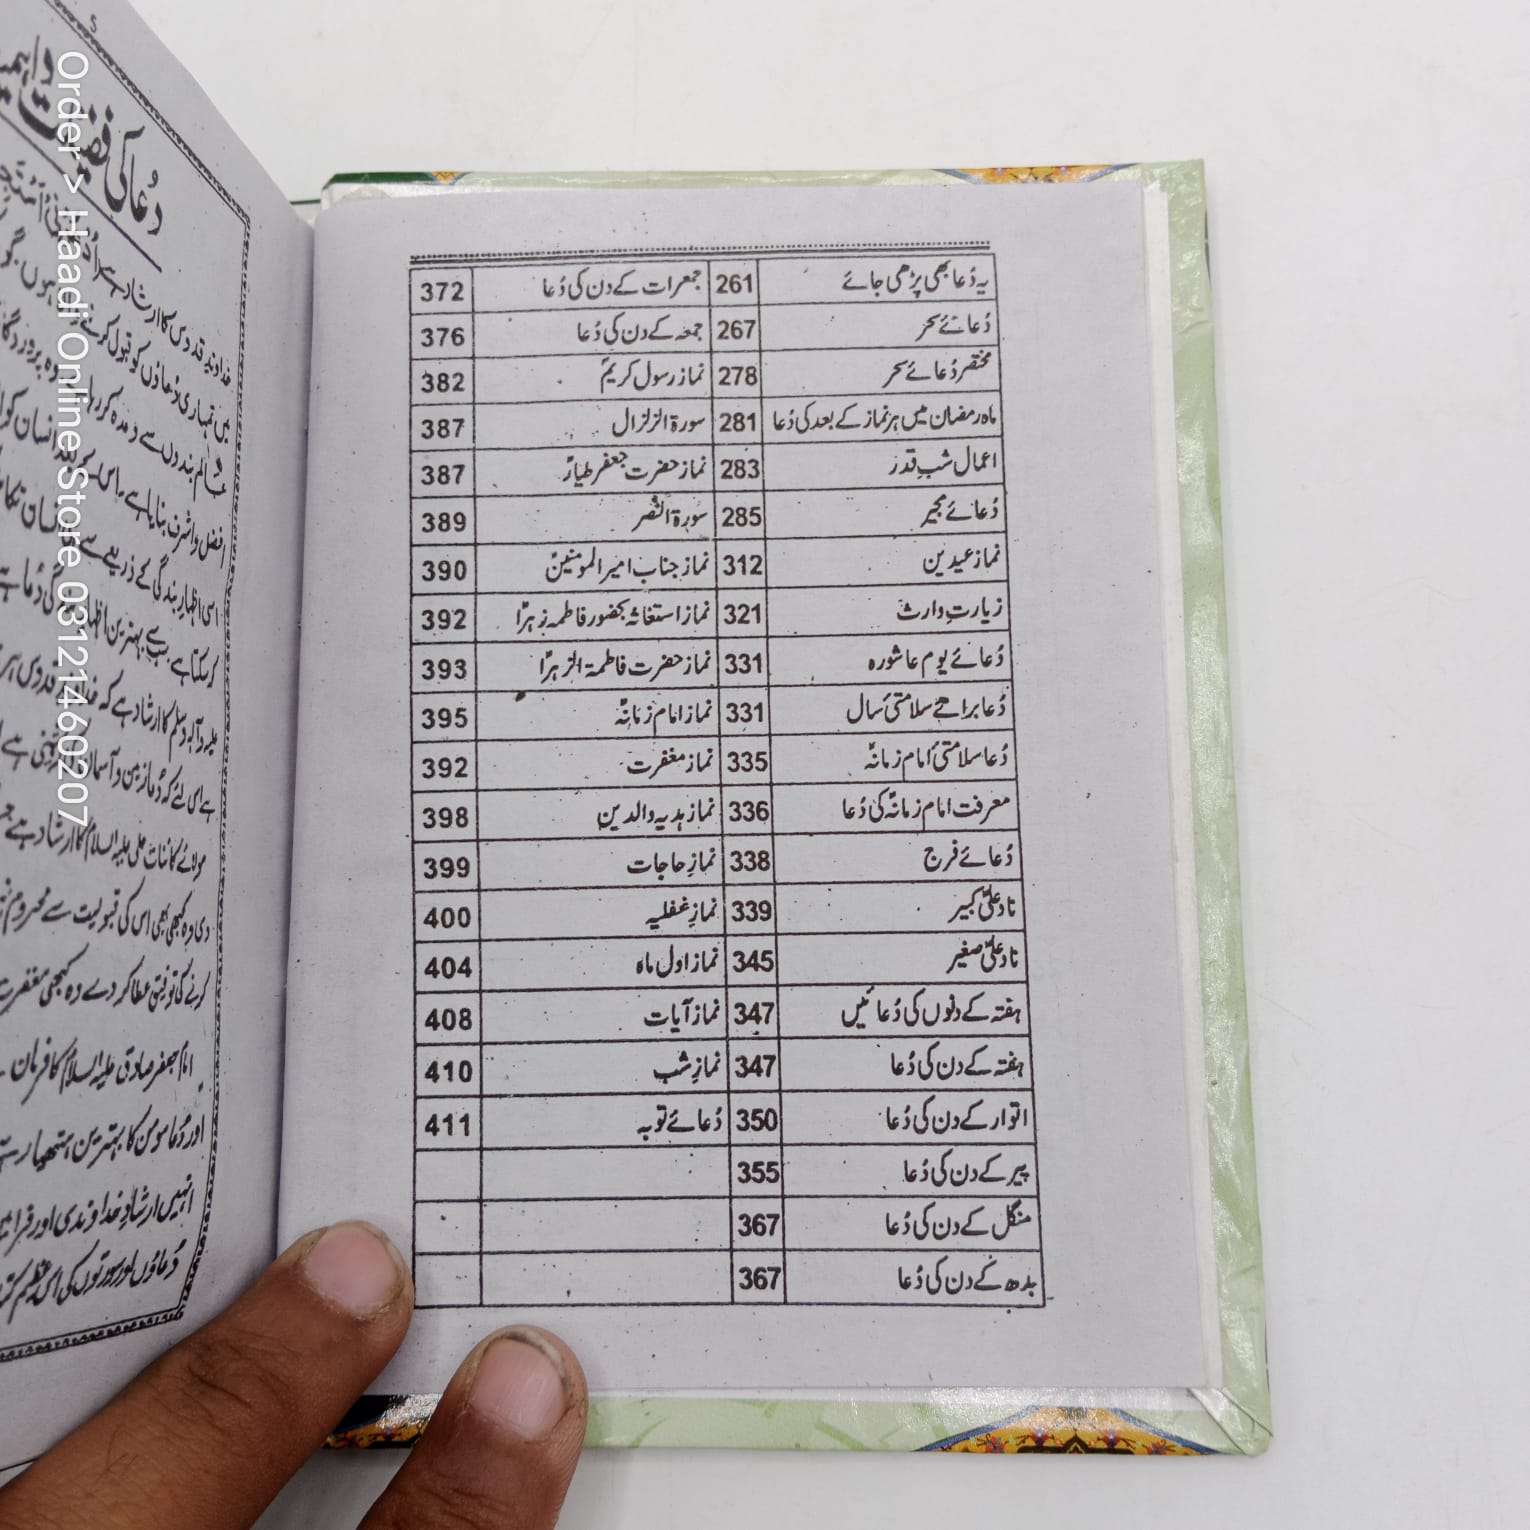 یہ دُعا بھی پڑھی جائے 261 جمعرات کے دن کی دُعا 372
دُعائے سحر 267 جمعہ کے دن کی دُعا 376
مختصر دُعائے سحر 278 نماز رسول کریمؐ 382
ماہ رمضان میں ہر نماز کے بعد کی دُعا 281 سورۃ الزلزال 387
اعمال شبِ قدر 283 نماز حضرت جعفر طیارؑ 387
دُعائے مجیر 285 سورۃ النصر 389
نماز عیدین 312 نماز جناب امیر المومنینؑ 390
زیارتِ وارث 321 نماز استغاثہ بحضور فاطمہ زہراؑ 392
دُعائے یوم عاشورہ 331 نماز حضرت فاطمۃ الزہراؑ 393
دُعا براے سلامتی سال 331 نماز امام زمانہؑ 395
دُعا سلامتی امام زمانہؑ 335 نماز مغفرت 392
معرفت امام زمانہؑ کی دُعا 336 نماز ہدیہ والدین 398
دُعائے فرج 338 نمازِ حاجات 399
ناد علیؑ کبیر 339 نمازِ غفلیہ 400
ناد علیؑ صغیر 345 نماز اول ماہ 404
ہفتہ کے دنوں کی دُعائیں 347 نماز آیات 408
ہفتہ کے دن کی دُعا 347 نمازِ شب 410
اتوار کے دن کی دُعا 350 دُعائے توبہ 411
پیر کے دن کی دُعا 355
منگل کے دن کی دُعا 367
بدھ کے دن کی دُعا 367
5
دُعا کی فضیلت
خداوندِ قدوس کا ارشاد ہے
میں تمہاری دُعاؤں کو قبول کرنے
بندوں سے وعدہ کر رہا
افضل و اشرف بنایا ہے۔ اس کے
اسی اظہارِ بندگی کے ذریعے سے
کر سکتا ہے۔ سب سے بہترین اظہار
علیہ وآلہ وسلم کا ارشاد ہے کہ
ہے اس لئے کہ دُعا زمین و آسمان
مولائے کائنات علی علیہ السلام کا ارشاد ہے
دی وہ کبھی بھی اس کی قبولیت سے محروم
کرنے کی توفیق عطا کر دے وہ کبھی مغفرت
امام جعفر صادق علیہ السلام کا فرمان
اور دُعا مومن کا بہترین ہتھیار ہے
انہیں ارشادِ خداوندی اور
دُعاؤں اور سورتوں کی اس عظیم
Order > Haadi Online Store 03121460207